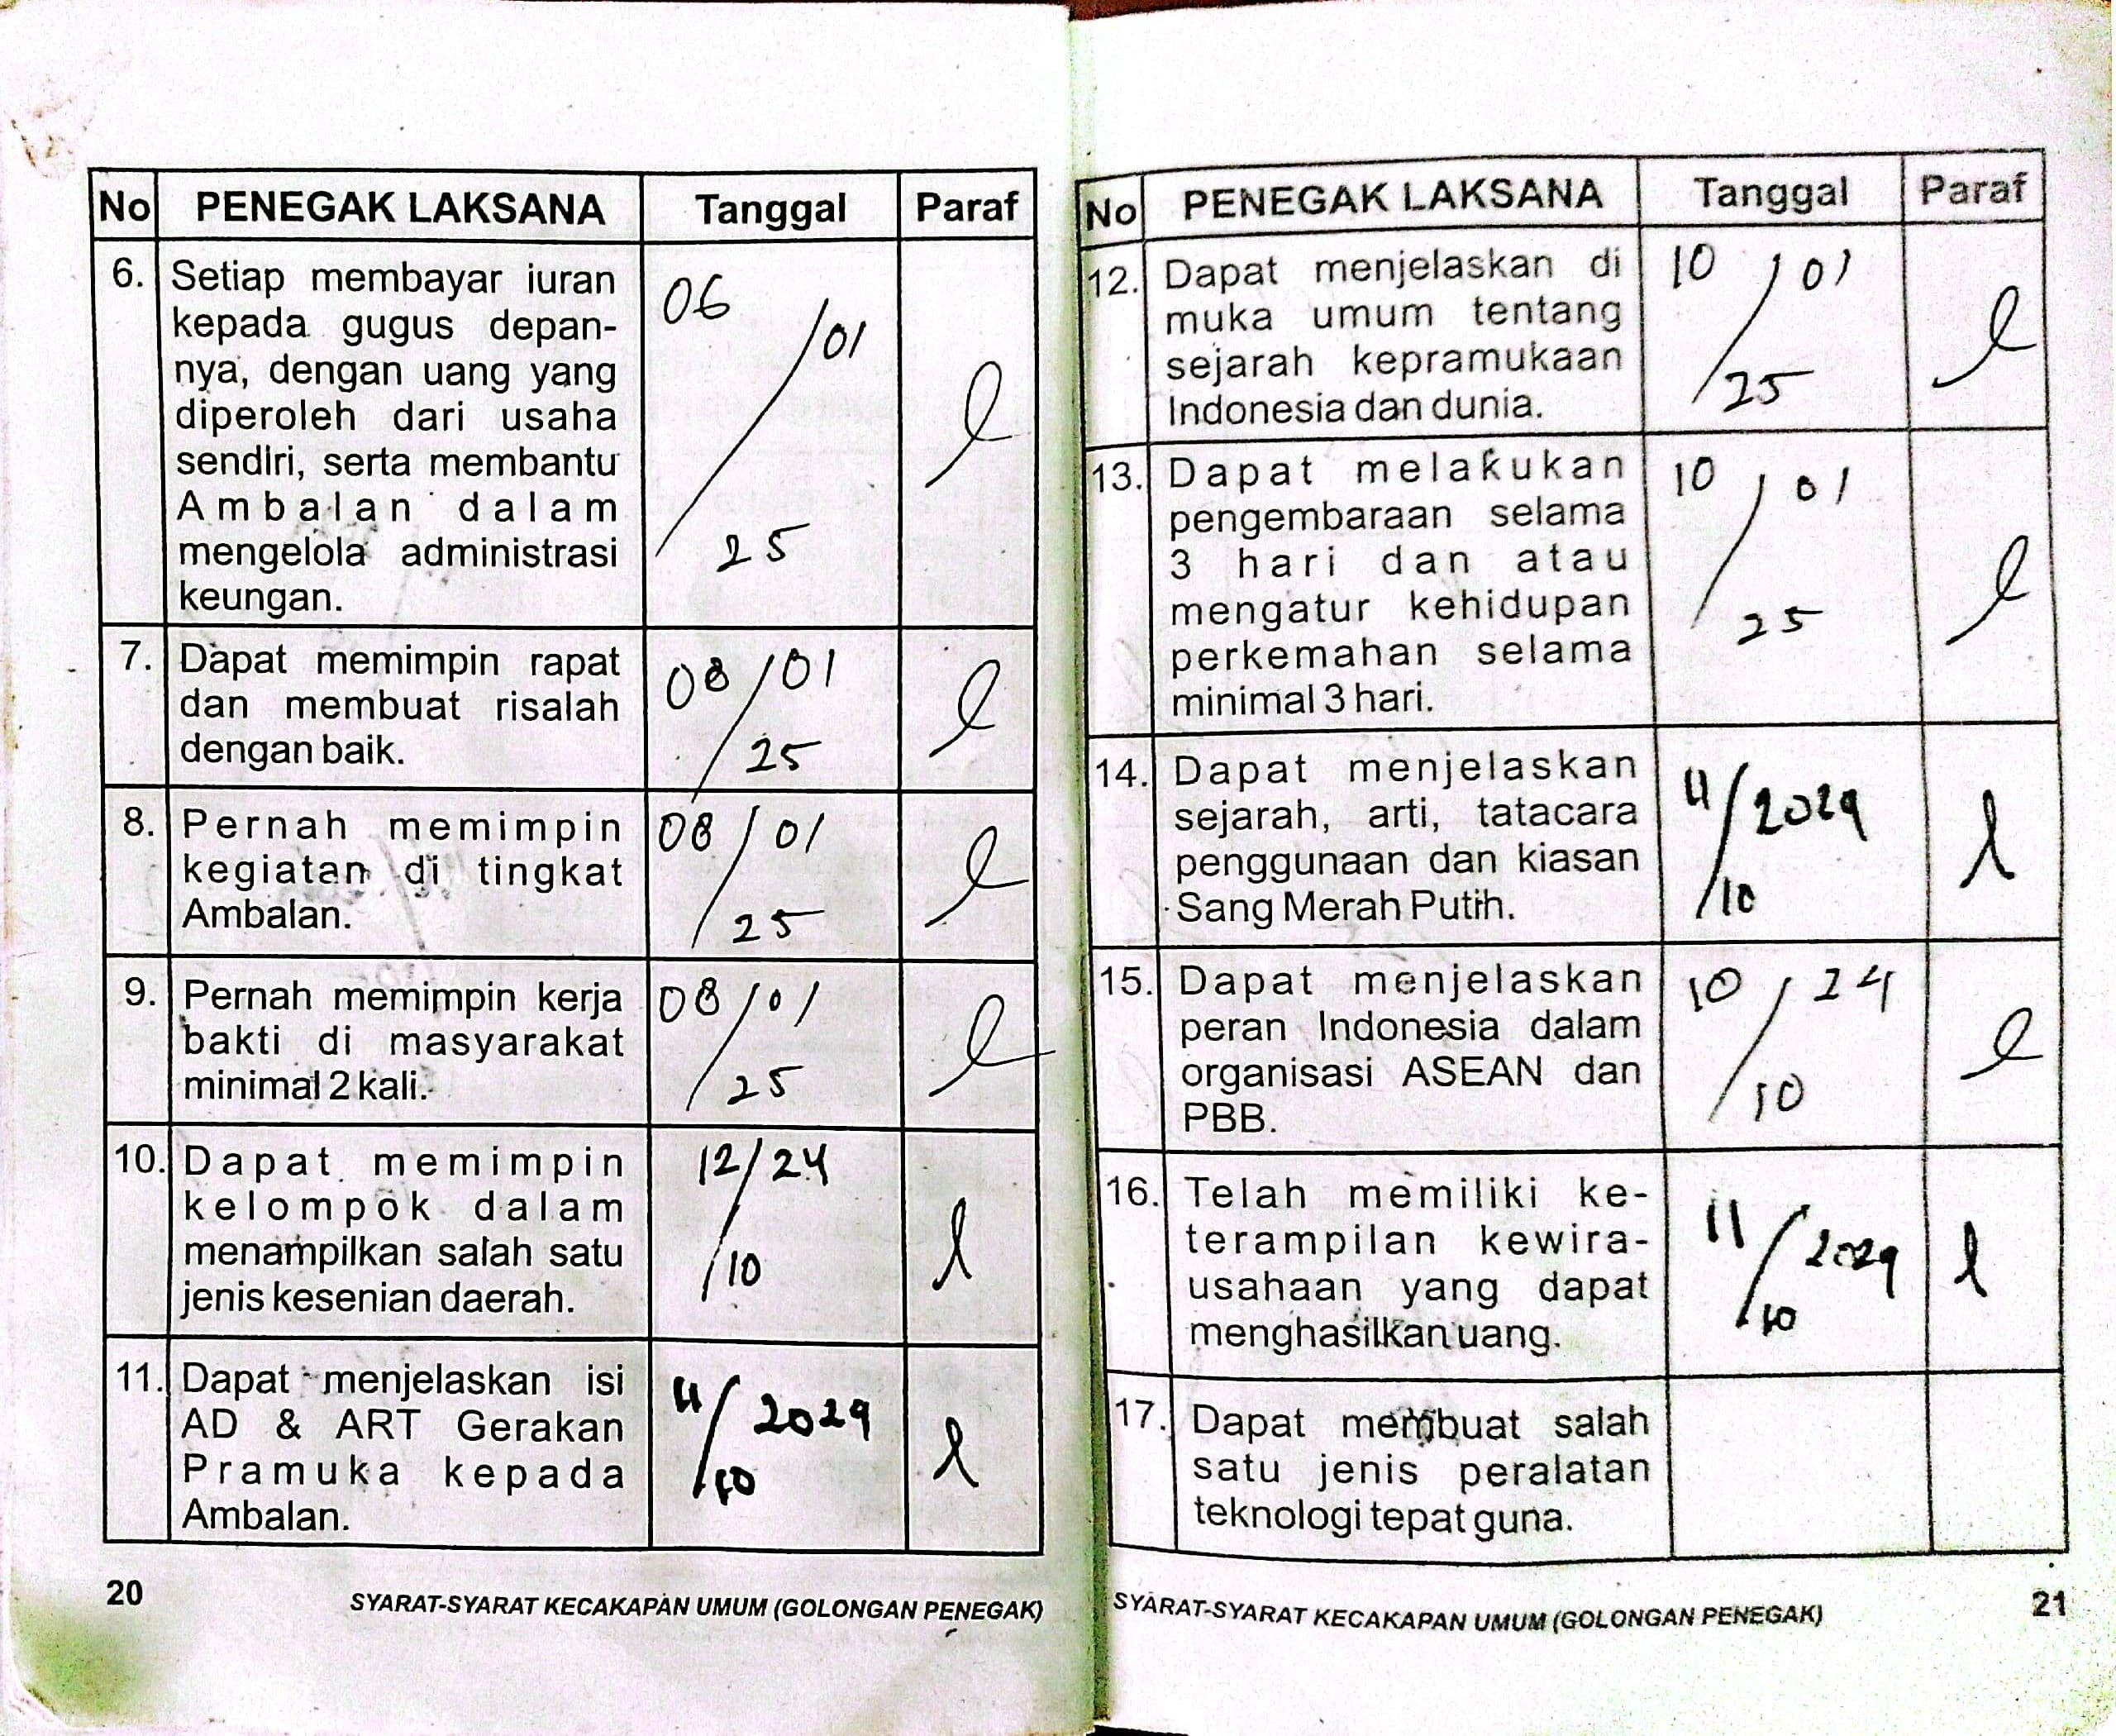 No PENEGAK LAKSANA Tanggal Paraf
6. Setiap membayar iuran
kepada gugus depan-
nya, dengan uang yang
diperoleh dari usaha
sendiri, serta membantu
Ambalan dalam
mengelola administrasi
keungan.
06/01
25
7. Dapat memimpin rapat
dan membuat risalah
dengan baik.
08/01
25
8. Pernah memimpin
kegiatan di tingkat
Ambalan.
08/01
25
9. Pernah memimpin kerja
bakti di masyarakat
minimal 2 kali.
08/01
25
10. Dapat memimpin
kelompok dalam
menampilkan salah satu
jenis kesenian daerah.
12/24
10
11. Dapat menjelaskan isi
AD & ART Gerakan
Pramuka kepada
Ambalan.
11/2024
10
20
SYARAT-SYARAT KECAKAPAN UMUM (GOLONGAN PENEGAK)
No PENEGAK LAKSANA Tanggal Paraf
12. Dapat menjelaskan di
muka umum tentang
sejarah kepramukaan
Indonesia dan dunia.
10/01
25
13. Dapat melakukan
pengembaraan selama
3 hari dan atau
mengatur kehidupan
perkemahan selama
minimal 3 hari.
10/01
25
14. Dapat menjelaskan
sejarah, arti, tatacara
penggunaan dan kiasan
Sang Merah Putih.
11/2024
10
15. Dapat menjelaskan
peran Indonesia dalam
organisasi ASEAN dan
PBB.
10/24
10
16. Telah memiliki ke-
terampilan kewira-
usahaan yang dapat
menghasilkan uang.
11/2024
10
17. Dapat membuat salah
satu jenis peralatan
teknologi tepat guna.
SYARAT-SYARAT KECAKAPAN UMUM (GOLONGAN PENEGAK)
21